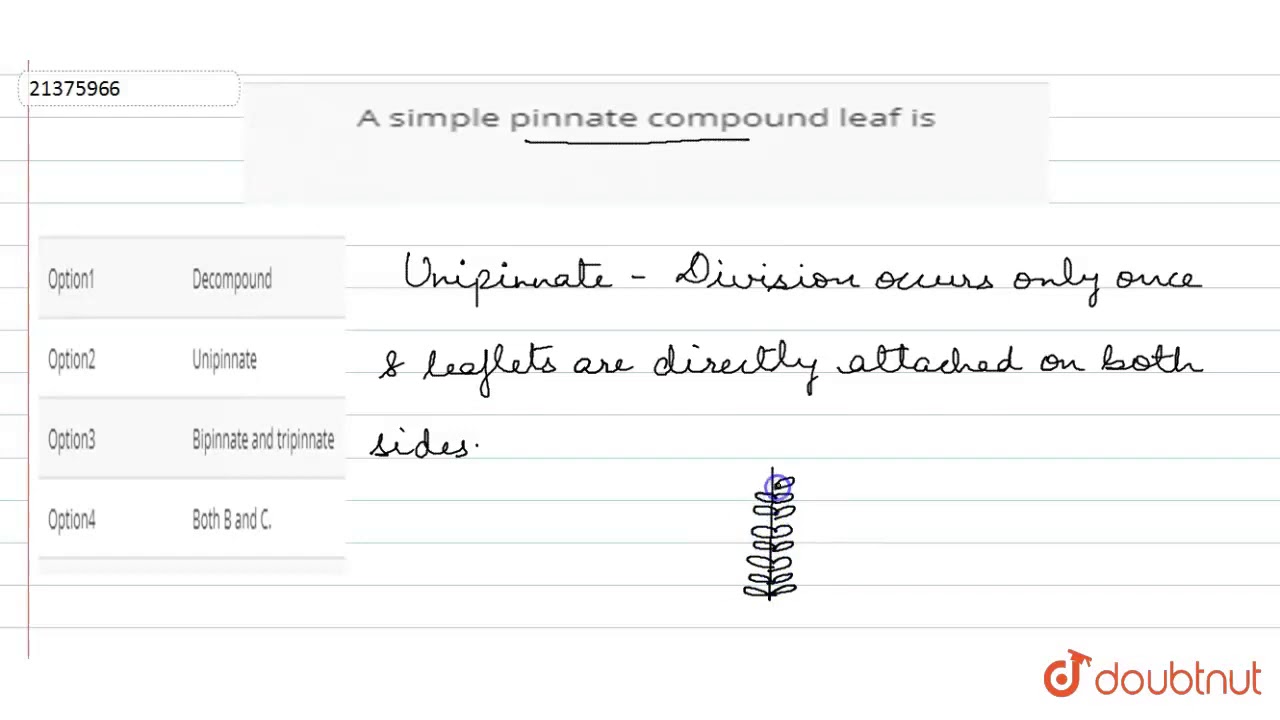 21375966
A simple pinnate compound leaf is
Option1 Decompound
Option2 Unipinnate
Option3 Bipinnate and tripinnate
Option4 Both B and C.
Unipinnate - Division occurs only once
& leaflets are directly attached on both
sides.
doubtnut